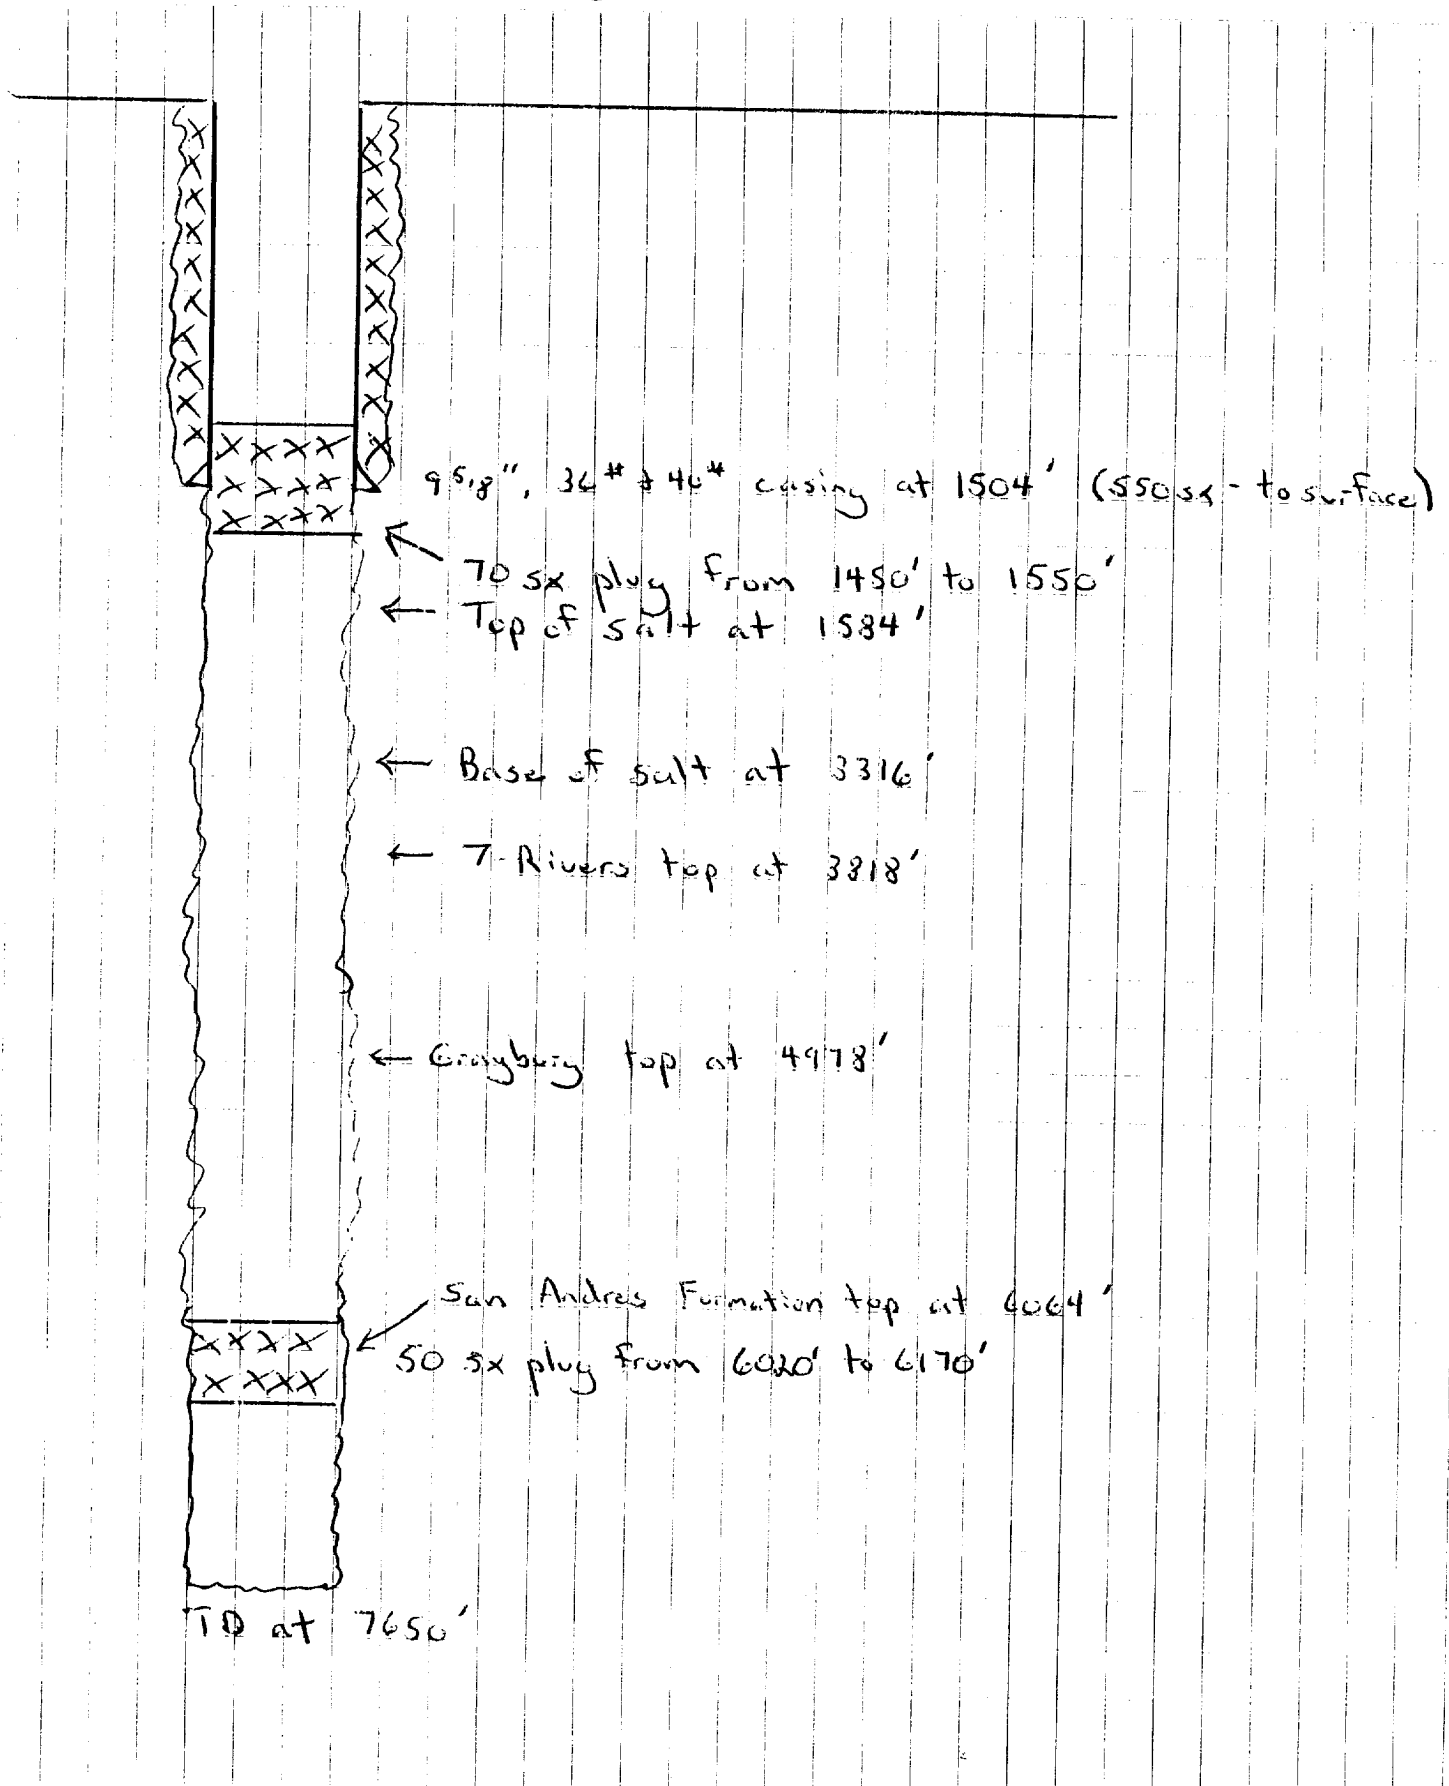 9 5/8", 36# & 40# casing at 1504' (550sx - to surface)
70 sx plug from 1450' to 1550'
Top of salt at 1584'
Base of salt at 3316'
7-Rivers top at 3818'
Grayburg top at 4978'
San Andres Formation top at 6064'
50 sx plug from 6020' to 6170'
TD at 7650'